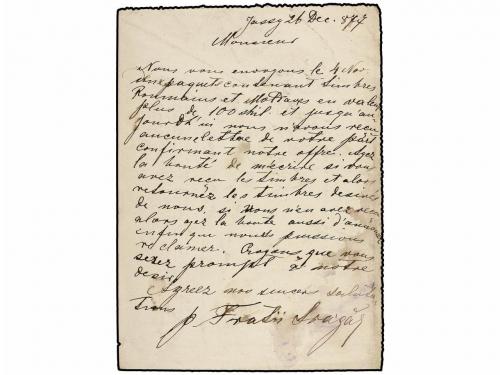 Jassy 26 Dec. 877
Monsieur
Nous vous envoyons le 4 Nov
paquets contenant timbres
Roumains et Moldaves en valeur
plus de 100 shil. et jusqu'au
jourd'hui nous n'avons recu
aucune lettre de votre part
confirmant notre offre. Ayez
la bonté de m'écrire si vous
avez recu les timbres et alors
retournez les timbres desirés
de nous, si vous n'en avez recu
alors ayez la bonté aussi
enfin que nous puissions
reclamer. que vous
serez prompt à notre
desir
Agreez nos sinceres saluta
tions
p Fratii